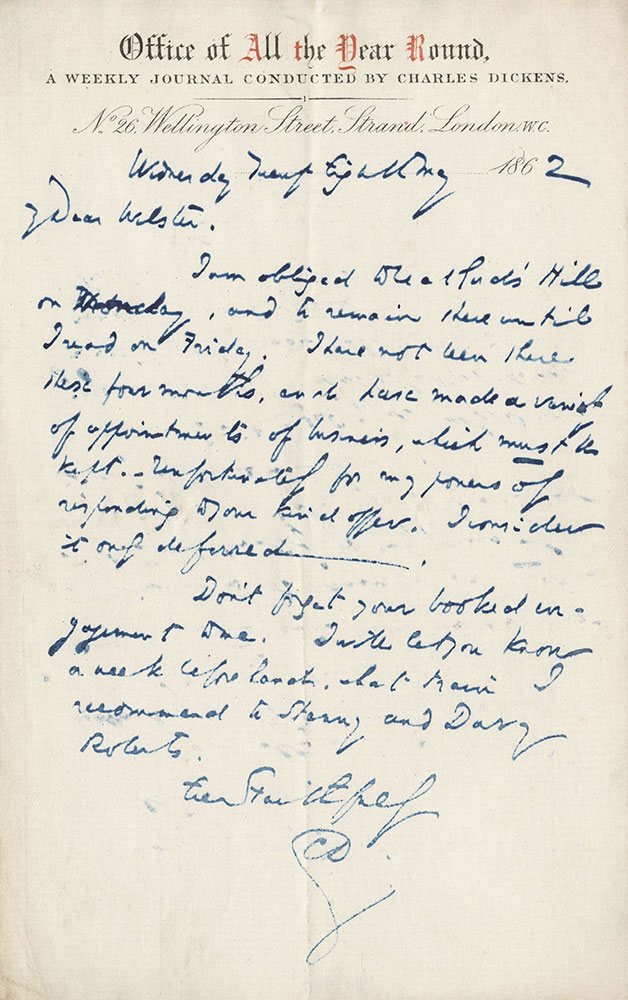 Office of All the Year Round,
A WEEKLY JOURNAL CONDUCTED BY CHARLES DICKENS.
No. 26, Wellington Street, Strand, London. W.C.
Wednesday Twenty Eighth May 1862
My Dear Webster.
I am obliged to be at Gad's Hill
on Monday, and to remain there until
I read on Friday. I have not been there
these four months, and have made a variety
of appointments of business, which must be
kept. Unfortunately for my powers of
responding to your kind offer. I consider
it only deferred.
Don't forget your booked en-
gagement to me. I will let you know
a week beforehand, what train I
recommend to Stanny and Davy
Roberts.
Ever Faithfully
CD